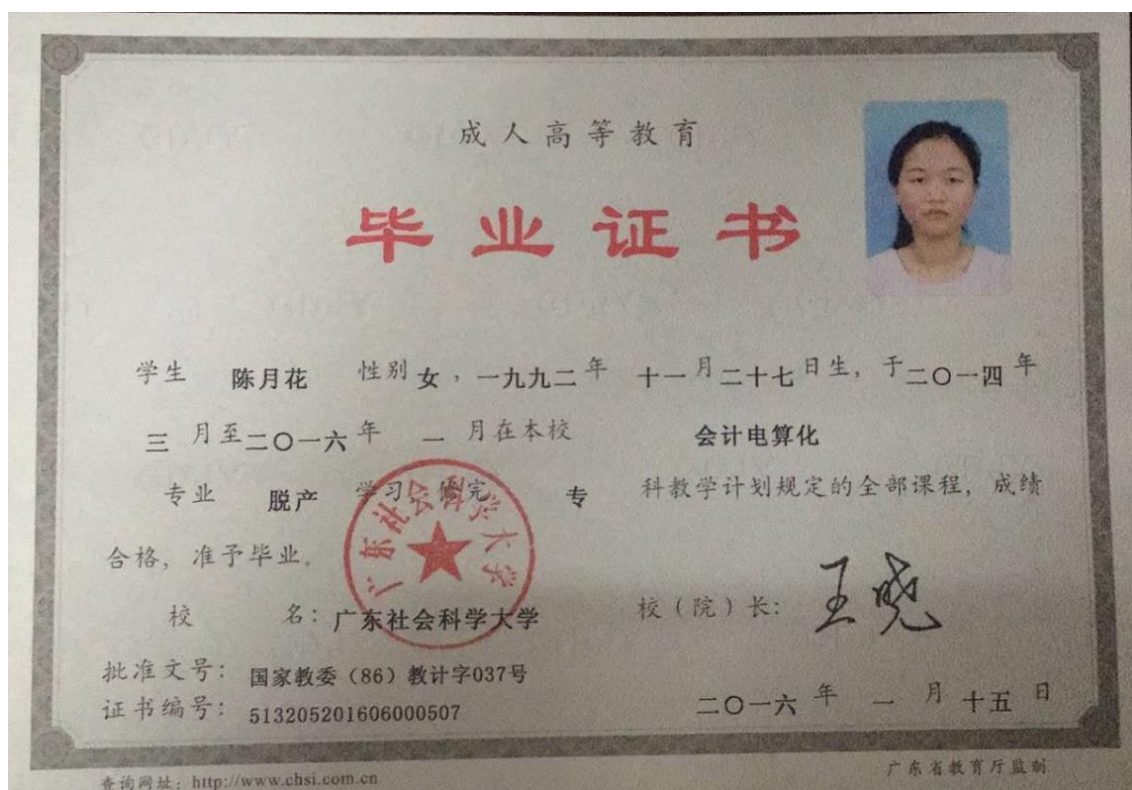 成人高等教育
毕业证书
学生 陈月花 性别 女，一九九二年 十一月二十七日生，于二〇一四年
三月至二〇一六年 一 月在本校 会计电算化
专业 脱产 学习，修完 专 科教学计划规定的全部课程，成绩
合格，准予毕业。
广东社会科学大学
校 名：广东社会科学大学 校（院）长：王晓
批准文号：国家教委（86）教计字037号
证书编号：513205201606000507 二〇一六年 一 月十五日
查询网址：http://www.chsi.com.cn 广东省教育厅监制